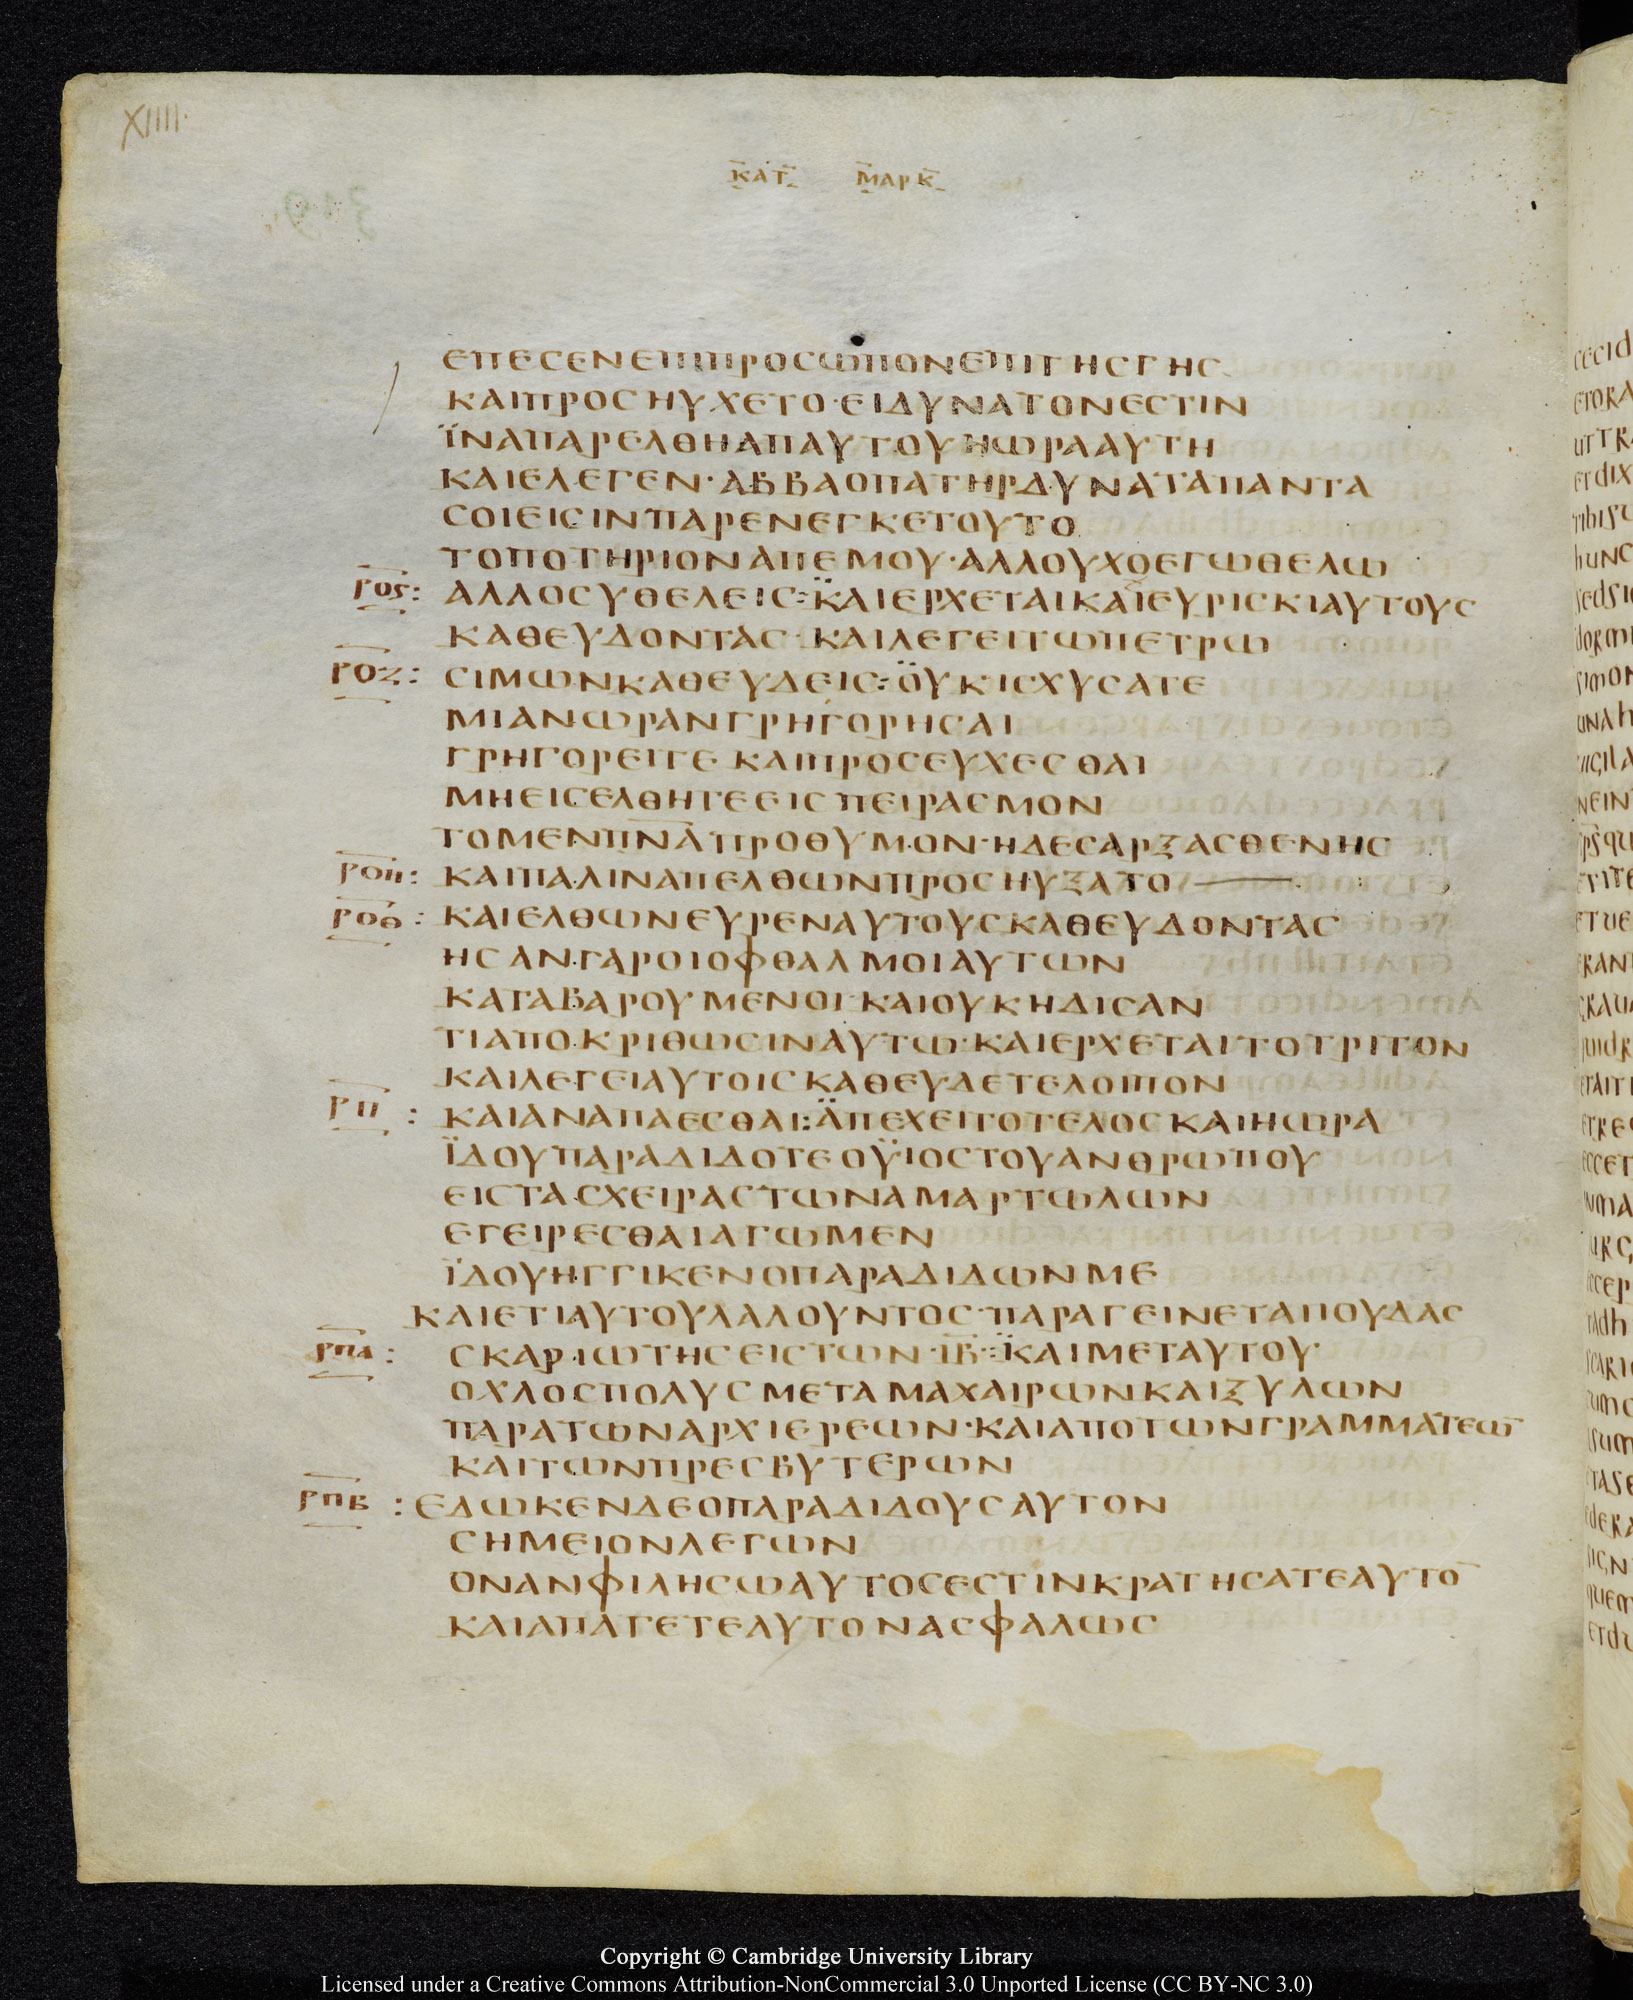 XIIII·
ΚΑΤ ΜΑΡΚ
ΕΠΕΣΕΝΕΠΙΠΡΟΣΩΠΟΝΕΠΙΤΗΣΓΗΣ
ΚΑΙΠΡΟΣΗΥΧΕΤΟ·ΕΙΔΥΝΑΤΟΝΕΣΤΙΝ
ΪΝΑΠΑΡΕΛΘΗΑΠΑΥΤΟΥΗΩΡΑΑΥΤΗ
ΚΑΙΕΛΕΓΕΝ·ΑΒΒΑΟΠΑΤΗΡΔΥΝΑΤΑΠΑΝΤΑ
ΣΟΙΕΙΣΙΝΠΑΡΕΝΕΓΚΕΤΟΥΤΟ
ΤΟΠΟΤΗΡΙΟΝΑΠΕΜΟΥ·ΑΛΛΟΥΧΟΕΓΩΘΕΛΩ
ΡΟϚ: ΑΛΛΟΣΥΘΕΛΕΙΣ:ΚΑΙΕΡΧΕΤΑΙΚΑΙΕΥΡΙΣΚΙΑΥΤΟΥΣ
ΚΑΘΕΥΔΟΝΤΑΣ·ΚΑΙΛΕΓΕΙΤΩΠΕΤΡΩ
ΡΟΖ: ΣΙΜΩΝΚΑΘΕΥΔΕΙΣ:ΟΥΚΙΣΧΥΣΑΤΕ
ΜΙΑΝΩΡΑΝΓΡΗΓΟΡΗΣΑΙ
ΓΡΗΓΟΡΕΙΤΕ ΚΑΙΠΡΟΣΕΥΧΕΣΘΑΙ
ΜΗΕΙΣΕΛΘΗΤΕΕΙΣΠΕΙΡΑΣΜΟΝ
ΤΟΜΕΝΠ̅Ν̅Α̅ΠΡΟΘΥΜΟΝ·ΗΔΕΣΑΡΞΑΣΘΕΝΗΣ
ΡΟΗ: ΚΑΙΠΑΛΙΝΑΠΕΛΘΩΝΠΡΟΣΗΥΞΑΤΟ
ΡΟΘ: ΚΑΙΕΛΘΩΝΕΥΡΕΝΑΥΤΟΥΣΚΑΘΕΥΔΟΝΤΑΣ
ΗΣΑΝ·ΓΑΡΟΙΟΦΘΑΛΜΟΙΑΥΤΩΝ
ΚΑΤΑΒΑΡΟΥΜΕΝΟΙ·ΚΑΙΟΥΚΗΔΙΣΑΝ
ΤΙΑΠΟΚΡΙΘΩΣΙΝΑΥΤΩ·ΚΑΙΕΡΧΕΤΑΙΤΟΤΡΙΤΟΝ
ΚΑΙΛΕΓΕΙΑΥΤΟΙΣΚΑΘΕΥΔΕΤΕΛΟΙΠΟΝ
ΡΠ: ΚΑΙΑΝΑΠΑΕΣΘΑΙ:ΑΠΕΧΕΙΤΟΤΕΛΟΣΚΑΙΗΩΡΑ
ΪΔΟΥΠΑΡΑΔΙΔΟΤΕΟΫΙΟΣΤΟΥΑΝΘΡΩΠΟΥ
ΕΙΣΤΑΣΧΕΙΡΑΣΤΩΝΑΜΑΡΤΩΛΩΝ
ΕΓΕΙΡΕΣΘΑΙΑΓΩΜΕΝ
ΪΔΟΥΗΓΓΙΚΕΝΟΠΑΡΑΔΙΔΩΝΜΕ
ΚΑΙΕΤΙΑΥΤΟΥΛΑΛΟΥΝΤΟΣ·ΠΑΡΑΓΕΙΝΕΤΑΙΙΟΥΔΑΣ
ΡΠΑ: ΣΚΑΡΙΩΤΗΣΕΙΣΤΩΝ·Ι̅Β̅·:ΚΑΙΜΕΤΑΥΤΟΥ·
ΟΧΛΟΣΠΟΛΥΣΜΕΤΑΜΑΧΑΙΡΩΝΚΑΙΞΥΛΩΝ
ΠΑΡΑΤΩΝΑΡΧΙΕΡΕΩΝ·ΚΑΙΑΠΟΤΩΝΓΡΑΜΜΑΤΕΩ̅
ΚΑΙΤΩΝΠΡΕΣΒΥΤΕΡΩΝ
ΡΠΒ: ΕΔΩΚΕΝΔΕΟΠΑΡΑΔΙΔΟΥΣΑΥΤΟΝ
ΣΗΜΕΙΟΝΛΕΓΩΝ
ΟΝΑΝΦΙΛΗΣΩΑΥΤΟΣΕΣΤΙΝΚΡΑΤΗΣΑΤΕΑΥΤΟ̅
ΚΑΙΑΠΑΓΕΤΕΑΥΤΟΝΑΣΦΑΛΩΣ
Copyright © Cambridge University Library
Licensed under a Creative Commons Attribution-NonCommercial 3.0 Unported License (CC BY-NC 3.0)